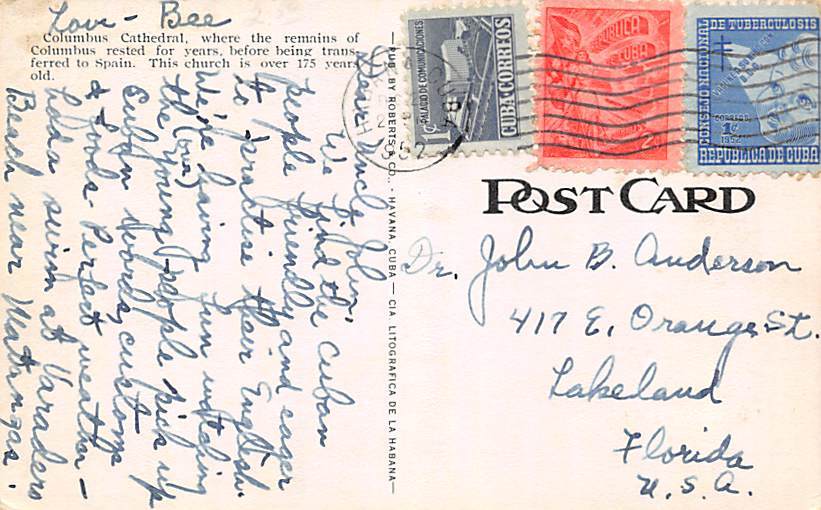 Love - Bee
Columbus Cathedral, where the remains of
Columbus rested for years, before being trans-
ferred to Spain. This church is over 175 years
old.
Dear Uncle John:
We find the Cuban
people friendly and eager
to practise their English.
We're having fun watching
the (our) young people pick up
Cuban words, customs
& foods. Perfect weather -
had a swim at Varadero
Beach near Matanzas.
PUB. BY ROBERTS & CO., - HAVANA, CUBA - CIA. LITOGRAFICA DE LA HABANA
PALACIO DE COMUNICACIONES
CUBA CORREOS
1c
REPUBLICA
CUBA
2
CONSEJO NACIONAL DE TUBERCULOSIS
CORREOS
1c
1952
REPUBLICA DE CUBA
POST CARD
Dr. John B. Anderson
417 E. Orange St.
Lakeland
Florida
U.S.A.